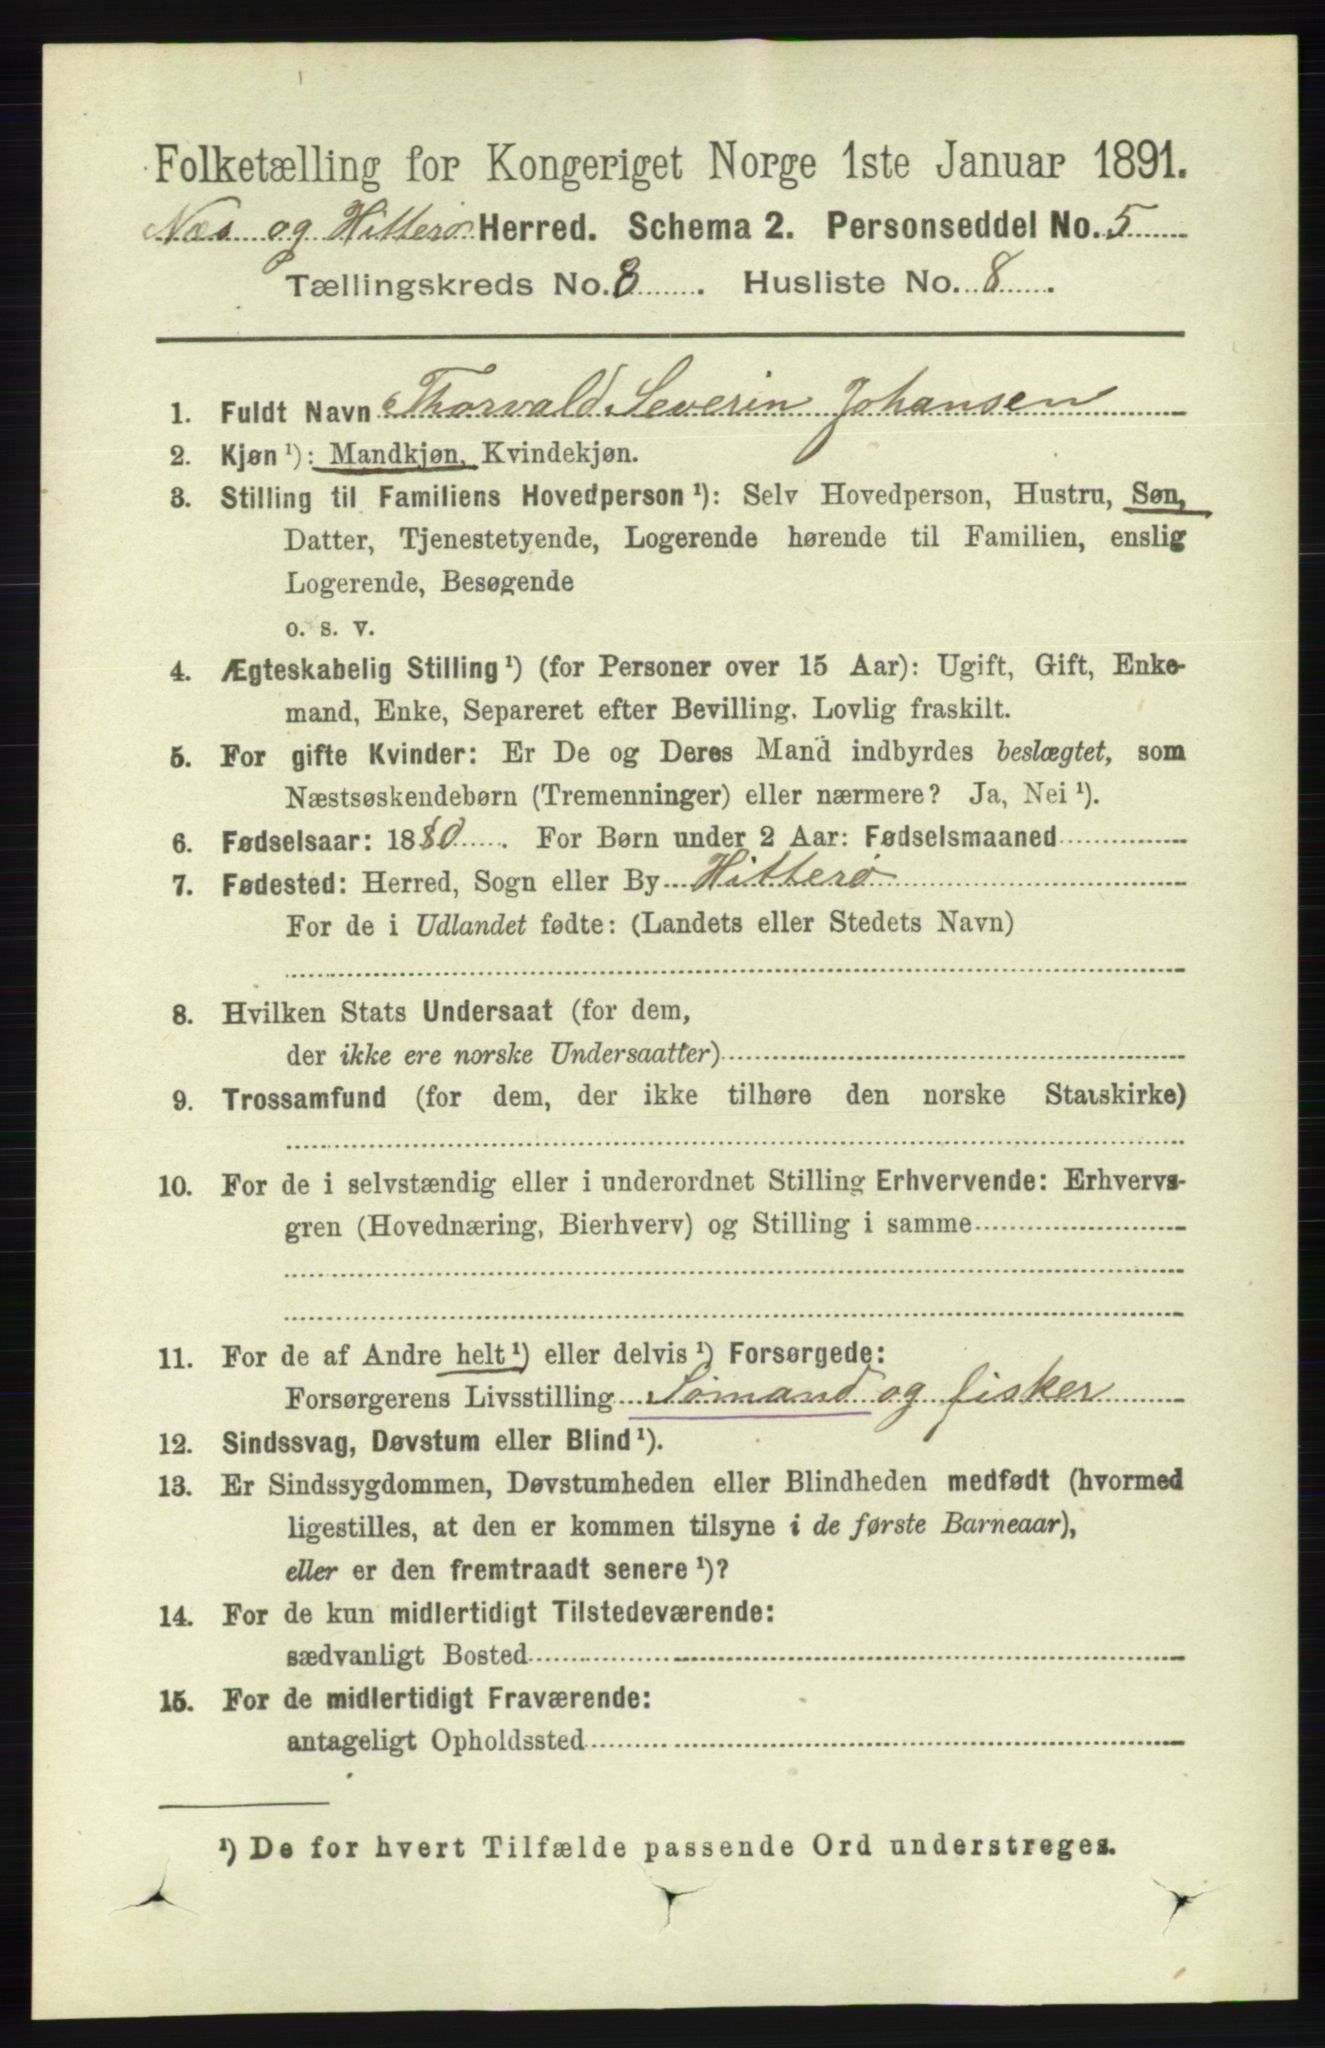 Folketælling for Kongeriget Norge 1ste Januar 1891.
Næs og Hitterø Herred. Schema 2. Personseddel No. 5
Tællingskreds No. 8. Husliste No. 8.
1. Fuldt Navn Thorvald Severin Johansen
2. Kjøn ¹): Mandkjøn, Kvindekjøn.
3. Stilling til Familiens Hovedperson ¹): Selv Hovedperson, Hustru, Søn,
Datter, Tjenestetyende, Logerende hørende til Familien, enslig
Logerende, Besøgende
o. s. v.
4. Ægteskabelig Stilling ¹) (for Personer over 15 Aar): Ugift, Gift, Enke-
mand, Enke, Separeret efter Bevilling. Lovlig fraskilt.
5. For gifte Kvinder: Er De og Deres Mand indbyrdes beslægtet, som
Næstsøskendebørn (Tremenninger) eller nærmere? Ja, Nei ¹).
6. Fødselsaar: 1880. For Børn under 2 Aar: Fødselsmaaned
7. Fødested: Herred, Sogn eller By Hitterø
For de i Udlandet fødte: (Landets eller Stedets Navn)
8. Hvilken Stats Undersaat (for dem,
der ikke ere norske Undersaatter)
9. Trossamfund (for dem, der ikke tilhøre den norske Statskirke)
10. For de i selvstændig eller i underordnet Stilling Erhvervende: Erhvervs-
gren (Hovednæring, Bierhverv) og Stilling i samme
11. For de af Andre helt ¹) eller delvis ¹) Forsørgede:
Forsørgerens Livsstilling Sømand og fisker
12. Sindssvag, Døvstum eller Blind ¹).
13. Er Sindssygdommen, Døvstumheden eller Blindheden medfødt (hvormed
ligestilles, at den er kommen tilsyne i de første Barneaar),
eller er den fremtraadt senere ¹)?
14. For de kun midlertidigt Tilstedeværende:
sædvanligt Bosted
15. For de midlertidigt Fraværende:
antageligt Opholdssted
¹) De for hvert Tilfælde passende Ord understreges.